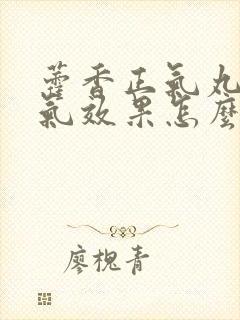 藿香正氣丸
氣效果怎麼
廖槐青